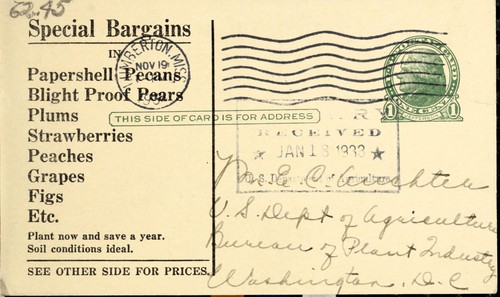 62.45
Special Bargains
IN
Papershell Pecans
Blight Proof Pears
Plums
Strawberries
Peaches
Grapes
Figs
Etc.
Plant now and save a year.
Soil conditions ideal.
SEE OTHER SIDE FOR PRICES.
LUMBERTON, MISS.
NOV 19
THIS SIDE OF CARD IS FOR ADDRESS
1 1
RECEIVED
★ JAN 18 1933 ★
U.S. Department of Agriculture
E. C. Auchter
U.S. Dept of Agriculture
Bureau of Plant Industry
Washington, D.C